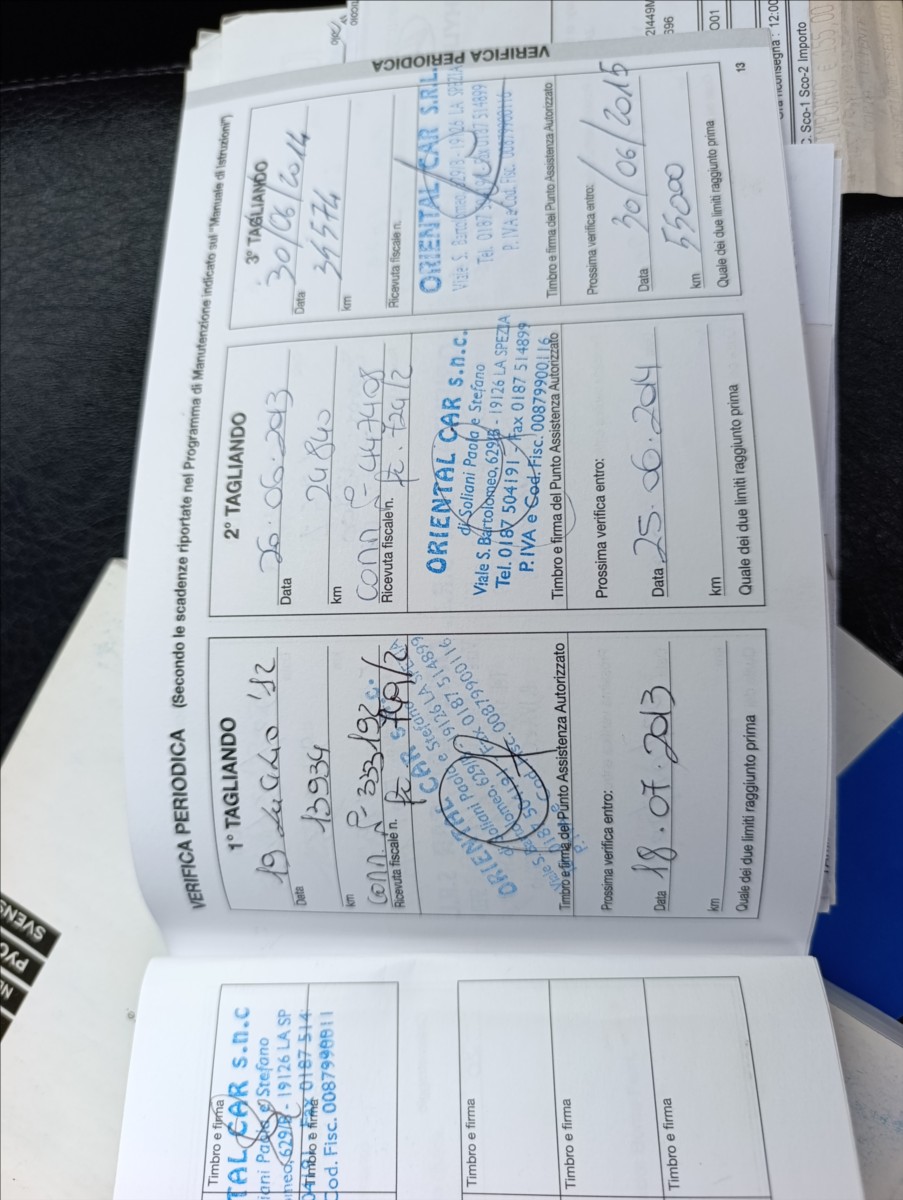 VERIFICA PERIODICA (Secondo le scadenze riportate nel Programma di Manutenzione indicato sul "Manuale di istruzioni")
1° TAGLIANDO
19 Luglio '12
Data
13934
km
Conn. 333192
Ricevuta fiscale n.
ORIENTAL CAR s.n.c.
di Soliani Paolo e Stefano
Viale S. Bartolomeo, 629/B - 19126 LA SPEZIA
Tel. 0187 504191 - Fax 0187 514899
P. IVA e Cod. Fisc. 00879900116
Timbro e firma del Punto Assistenza Autorizzato
Prossima verifica entro:
Data 18.07.2013
km
Quale dei due limiti raggiunto prima
2° TAGLIANDO
26.06.2013
Data
24840
km
Conn 447408
Ricevuta fiscale n.
ORIENTAL CAR s.n.c.
di Soliani Paolo e Stefano
Viale S. Bartolomeo, 629/B - 19126 LA SPEZIA
Tel. 0187 504191 - Fax 0187 514899
P. IVA e Cod. Fisc. 00879900116
Timbro e firma del Punto Assistenza Autorizzato
Prossima verifica entro:
Data 25.06.2014
km
Quale dei due limiti raggiunto prima
3° TAGLIANDO
30/06/2014
Data
34574
km
Ricevuta fiscale n.
ORIENTAL CAR S.R.L.
Viale S. Bartolomeo, 629/B - 19126 LA SPEZIA
Tel. 0187 504191 Fax 0187 514899
P. IVA e Cod. Fisc. 00879900116
Timbro e firma del Punto Assistenza Autorizzato
Prossima verifica entro:
30/06/2015
Data
55000
km
Quale dei due limiti raggiunto prima
13
VERIFICA PERIODICA
Timbro e firma
TAL CAR s.n.c
iani Paolo e Stefano
meo, 629/B - 19126 LA SP
Fax 0187 514
Timbro e firma
Cod. Fisc. 00879900011
Timbro e firma
Timbro e firma
Timbro e firma
21449M
596
001
12:00
Sco-1 Sco-2 Importo
SVENS